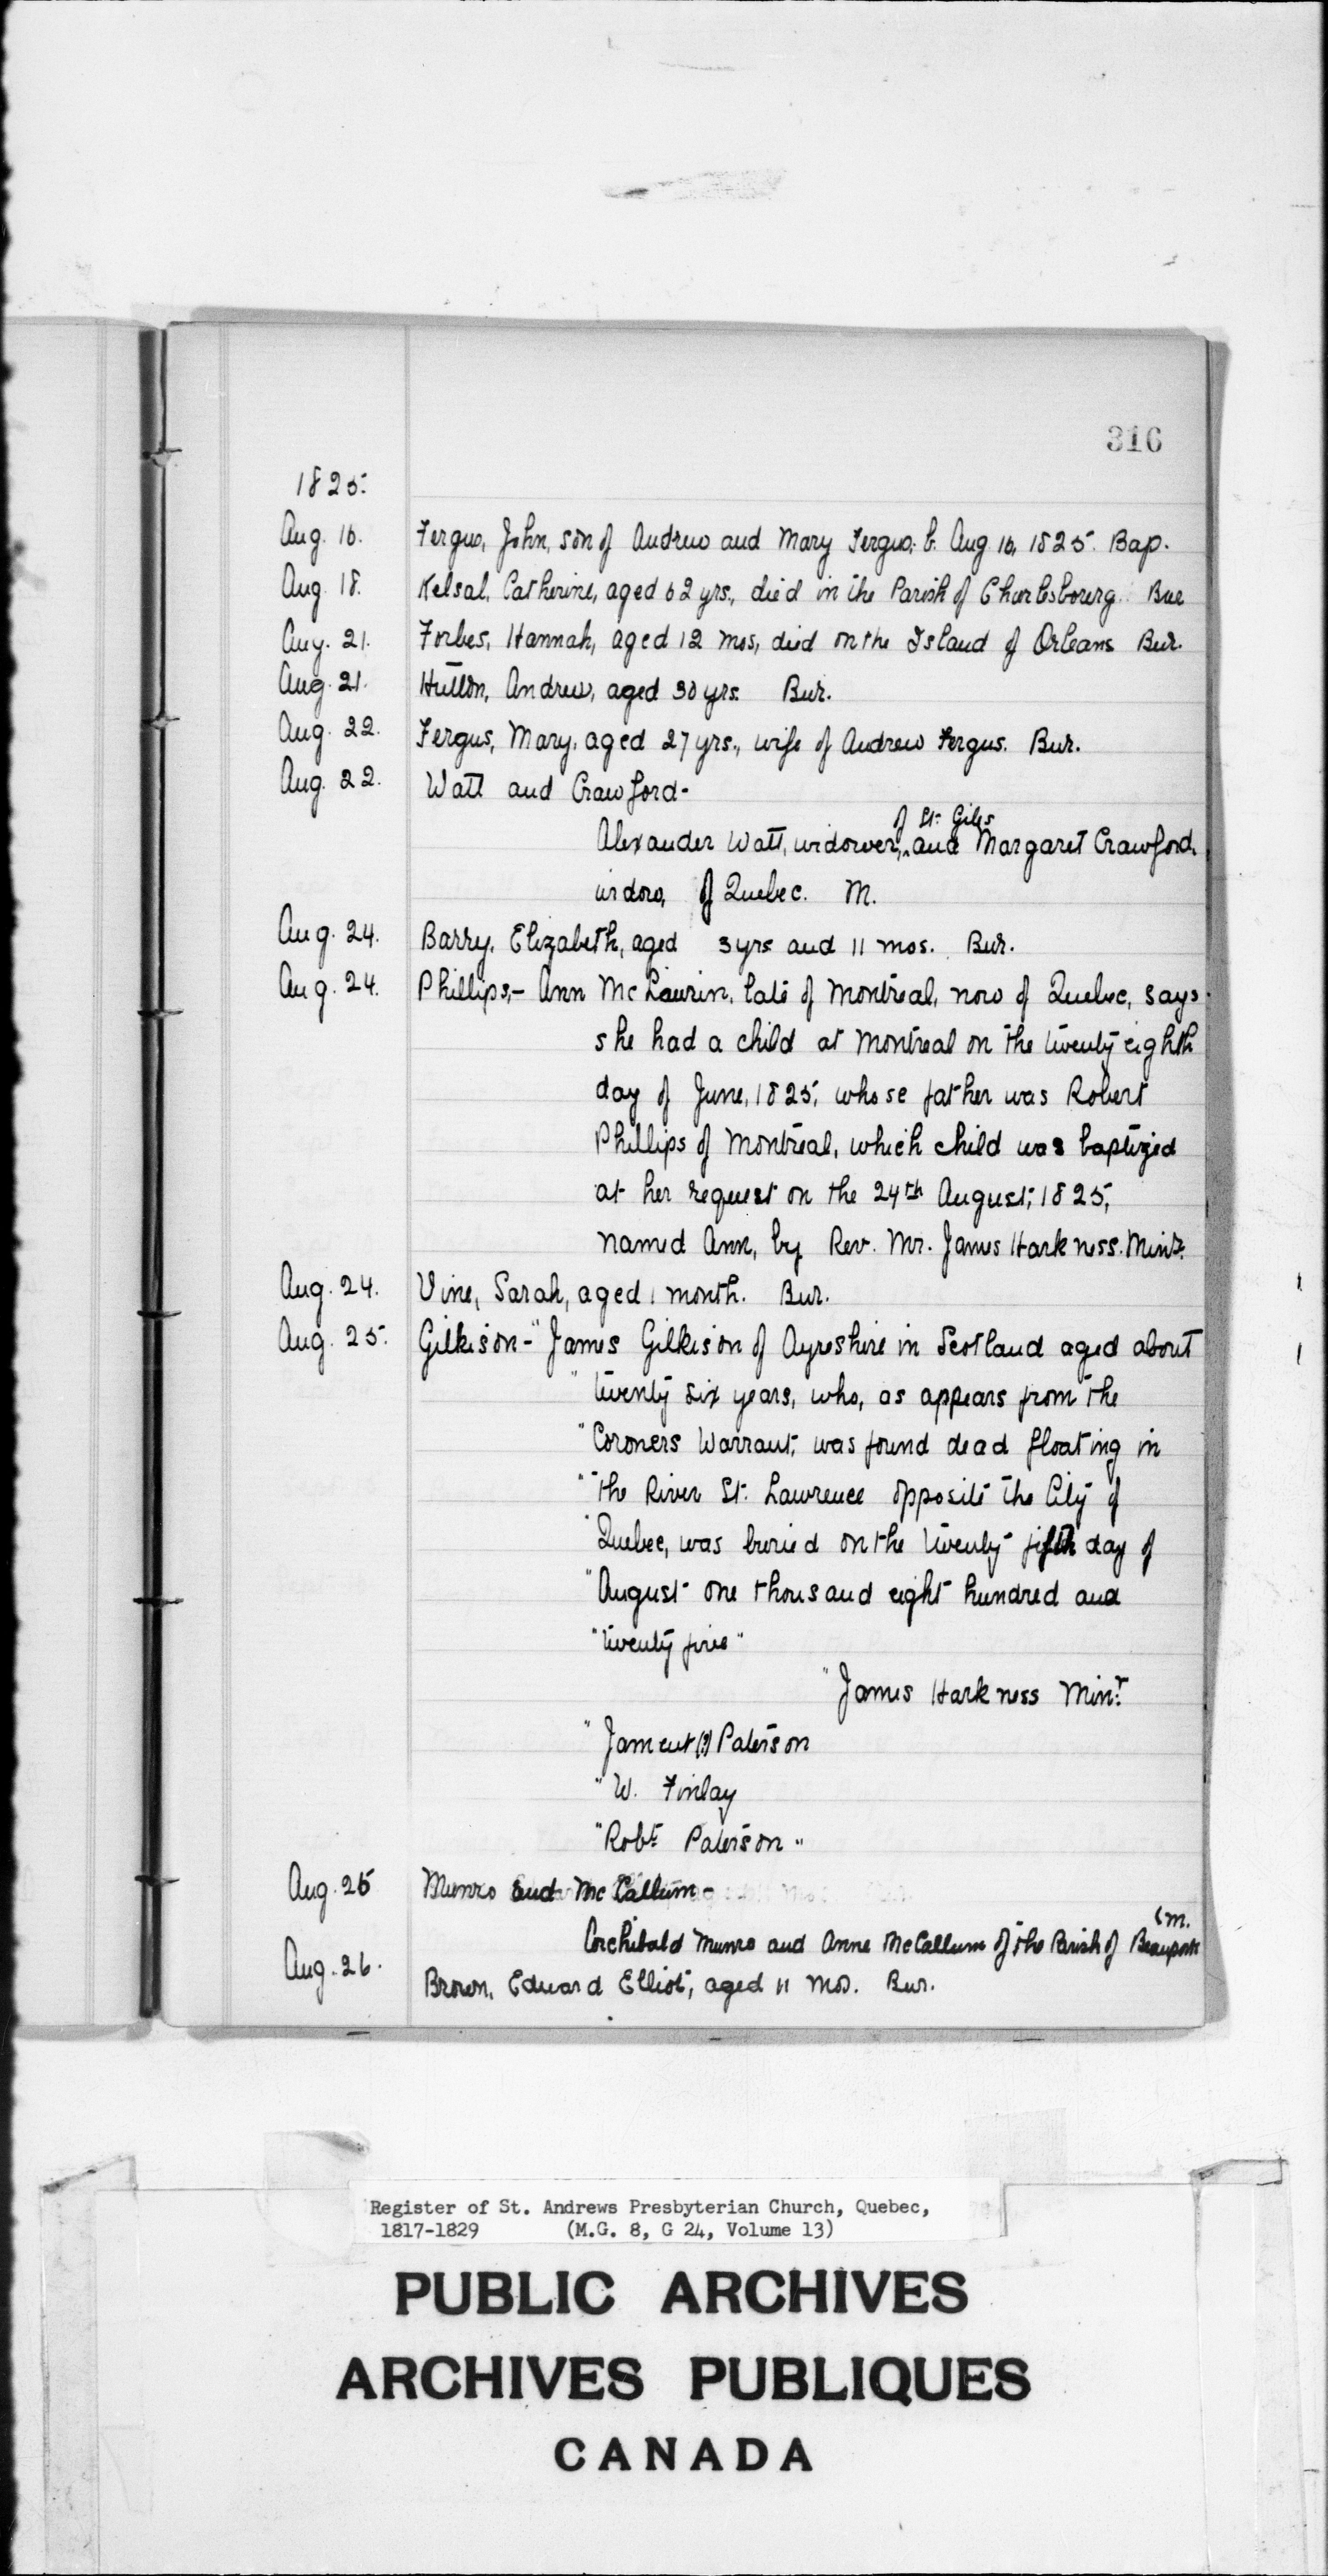 316
1825.
Aug. 16. Fergus, John, son of Andrew and Mary Fergus; b. Aug 16, 1825. Bap.
Aug. 18. Kelsal, Catherine, aged 62 yrs., died in the Parish of Charlesbourg. Bur
Aug. 21. Forbes, Hannah, aged 12 mos, died on the Island of Orleans Bur.
Aug. 21. Hutton, Andrew, aged 30 yrs. Bur.
Aug. 22. Fergus, Mary, aged 27 yrs., wife of Andrew Fergus. Bur.
Aug. 22. Watt and Crawford-
of St. Giles
Alexander Watt, widower, ^ and Margaret Crawford,
widow, of Quebec. M.
Aug. 24. Barry, Elizabeth, aged 3 yrs and 11 mos. Bur.
Aug. 24. Phillips,- Ann McLaurin, late of Montreal, now of Quebec, says
she had a child at Montreal on the twenty eighth
day of June, 1825, whose father was Robert
Phillips of Montreal, which child was baptized
at her request on the 24th August, 1825,
named Ann, by Rev. Mr. James Harkness. Minr.
Aug. 24. Vine, Sarah, aged 1 month. Bur.
Aug. 25. Gilkison- "James Gilkison of Ayreshire in Scotland aged about
"twenty six years, who, as appears from the
"Coroners Warrant, was found dead floating in
"the River St. Lawrence opposite the City of
"Quebec, was buried on the twenty fifth day of
"August one thousand eight hundred and
"twenty five"
"James Harkness Minr.
"Jameut (?) Paterson
"W. Finlay
"Robt. Paterson"
Aug. 25 Munro and McCallum-
(M.
Archibald Munro and Anne McCallum of the Parish of Beauport
Aug. 26. Brown, Edward Elliot, aged 11 mos. Bur.
Register of St. Andrews Presbyterian Church, Quebec,
1817-1829 (M.G. 8, G 24, Volume 13)
PUBLIC ARCHIVES
ARCHIVES PUBLIQUES
CANADA